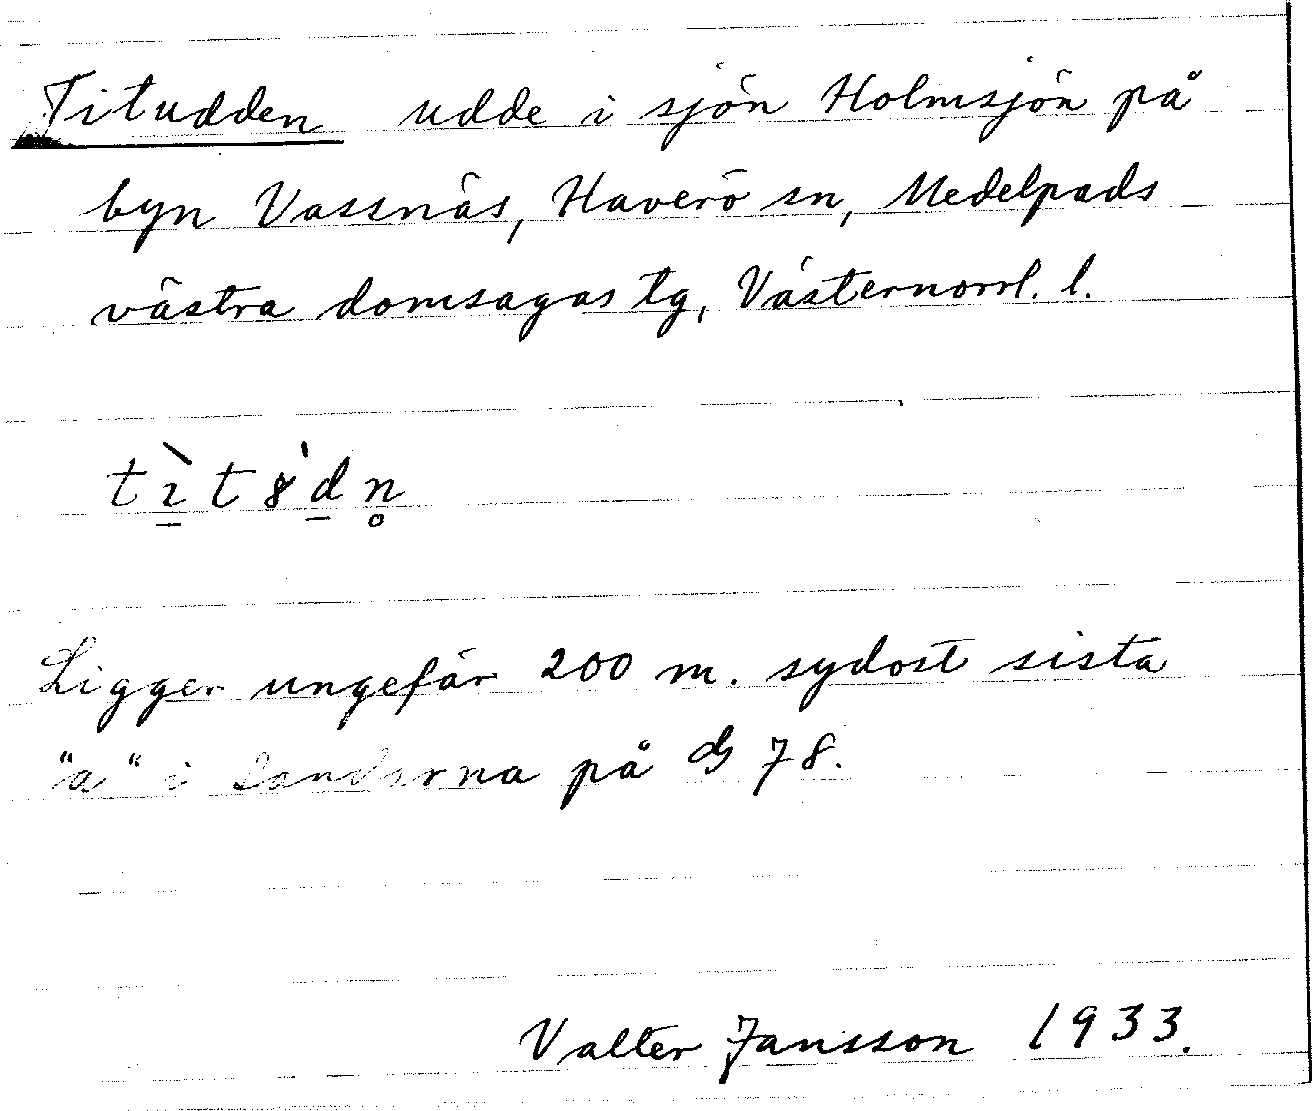 Titudden udde i sjön Holmsjön på
byn Vassnäs, Haverö sn, Medelpads
västra domsagas tg, Västernorrl. l.
tɩ̠̀t8̍d̠n̥
Ligger ungefär 200 m. sydost sista
"a" i Sandarna på GB 78.
Valter Jansson 1933.